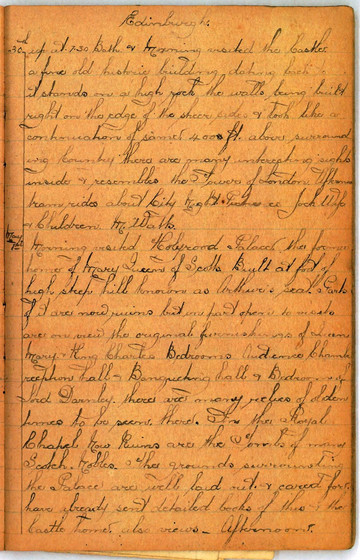 Edinburgh.
30th up at 7-30 Bath & Morning visited the Castle
a fine old historic building, dating back
it stands on a high rock, the walls being built
right on the edge of the sheer sides & look like a
continuation of same 400 ft. above surround
ing Country there are many interesting sights
inside & resembles the Tower of London. Aftern
tram rides about City Night
& Children Mc
May 1st Morning visited Holyrood Palace the former
home of Mary Queen of Scotts. Built at foot of
high steep hill known as Arthur's Seat. Parts
of it are now ruins but one part open to
are on view the original furnishings of Queen
Mary & King Charles Bedrooms Audience Chamb
reception hall & Banqueting hall & Bedroom of
Lord Darnley. there are many relics of olden
times to be seen there. In the Royal
Chapel Now Ruins are the Tombs of many
Scotch Nobles. The grounds surrounding
the Palace are well laid out & cared for,
have already sent detailed books of this & the
Castle home, also views - Afternoon.